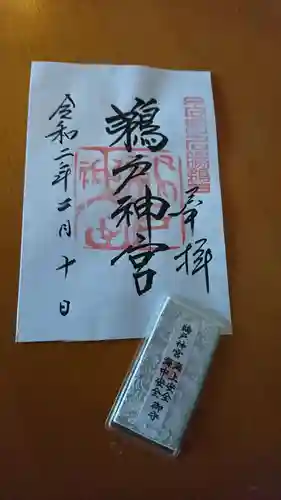 奉拝
鵜戸神宮
令和二年二月十日
鵜戸神宮
海上安全
海中安全
御守